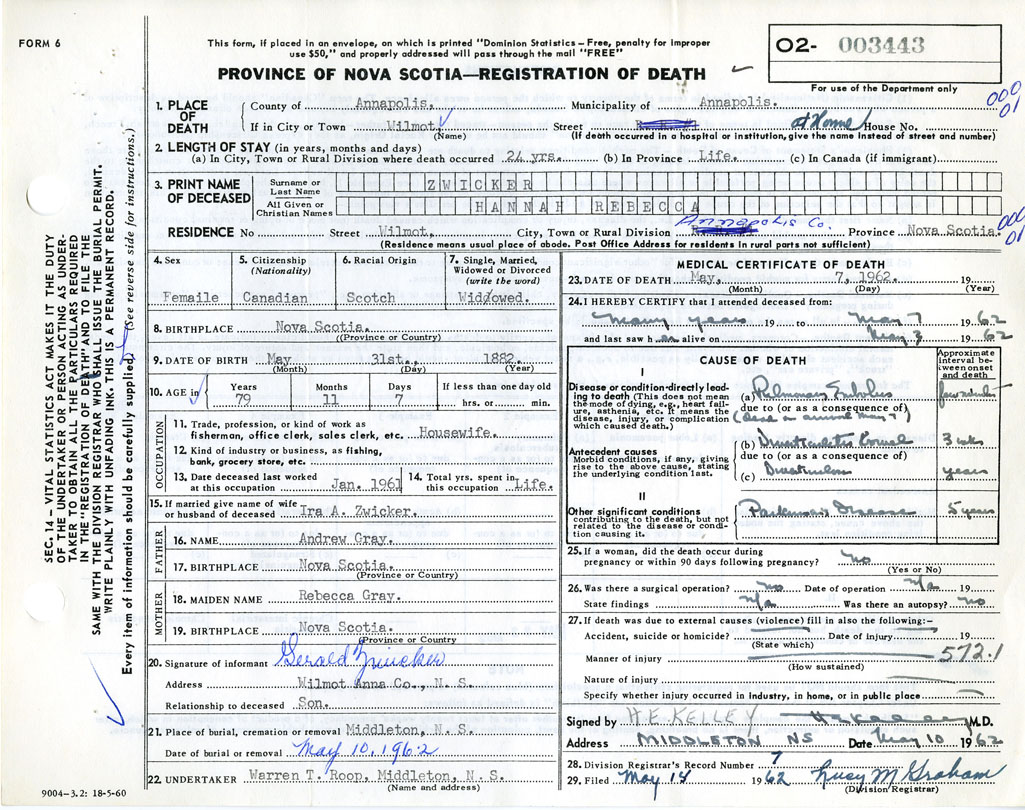 FORM 6
This form, if placed in an envelope, on which is printed "Dominion Statistics – Free, penalty for improper
use $50," and properly addressed will pass through the mail "FREE"
O2- 003443
PROVINCE OF NOVA SCOTIA—REGISTRATION OF DEATH
For use of the Department only
1. PLACE OF DEATH
County of Annapolis. Municipality of Annapolis.
000
01
If in City or Town Wilmot, Street at Home House No.
(Name) (If death occurred in a hospital or institution, give name instead of street and number)
2. LENGTH OF STAY (in years, months and days)
(a) In City, Town or Rural Division where death occurred 24 yrs. (b) In Province Life. (c) In Canada (if immigrant)
3. PRINT NAME OF DECEASED
Surname or Last Name ZWICKER
All Given or Christian Names HANNAH REBECCA
Annapolis Co.
000
01
RESIDENCE No Street Wilmot, City, Town or Rural Division Province Nova Scotia.
(Residence means usual place of abode. Post Office Address for residents in rural parts not sufficient)
4. Sex
Femaile
5. Citizenship
(Nationality)
Canadian
6. Racial Origin
Scotch
7. Single, Married,
Widowed or Divorced
(write the word)
Widowed.
8. BIRTHPLACE Nova Scotia.
((Province or Country)
9. DATE OF BIRTH May 31st., 1882.
(Month) (Day) (Year)
10. AGE in
Years Months Days If less than one day old
79 11 7 hrs. or min.
OCCUPATION
11. Trade, profession, or kind of work as
fisherman, office clerk, sales clerk, etc. Housewife.
12. Kind of industry or business, as fishing,
bank, grocery store, etc.
13. Date deceased last worked
at this occupation Jan. 1961
14. Total yrs. spent in
this occupation Life.
15. If married give name of wife
or husband of deceased Ira A. Zwicker.
FATHER
16. NAME Andrew Gray.
17. BIRTHPLACE Nova Scotia.
(Province or Country)
MOTHER
18. MAIDEN NAME Rebecca Gray.
19. BIRTHPLACE Nova Scotia.
(Province or Country
20. Signature of informant Gerald Zwicker
Address Wilmot Anna Co., N. S.
Relationship to deceased Son.
21. Place of burial, cremation or removal Middleton, N. S.
Date of burial or removal May 10. 1962
22. UNDERTAKER Warren T. Roop, Middleton, N. S.
(Name and address)
9004-3.2: 18-5-60
MEDICAL CERTIFICATE OF DEATH
23. DATE OF DEATH May, 7, 1962. 19
(Month) (Day) (Year)
24. I HEREBY CERTIFY that I attended deceased from:
many years 19 to May 7 1962
and last saw h er alive on May 3 1962
CAUSE OF DEATH
Approximate
Interval between onset
and death
I
Disease or condition directly leading to death (This does not mean
the mode of dying, e.g., heart failure, asthenia, etc. It means the
disease, injury, or complication
which caused death.)
(a) Pulmonary Embolus few minutes
due to (or as a consequence of)
(dead on arrival May 7)
Antecedent causes
Morbid conditions, if any, giving
rise to the above cause, stating
the underlying condition last.
(b) Diverticulitis Bowel 3 wks
due to (or as a consequence of)
(c) years
II
Other significant conditions
contributing to the death, but not
related to the disease or condition causing it.
Parkinson's Disease 5 years
25. If a woman, did the death occur during
pregnancy or within 90 days following pregnancy? no
(Yes or No)
26. Was there a surgical operation? no Date of operation n/a 19
State findings n/a Was there an autopsy? no
27. If death was due to external causes (violence) fill in also the following:–
Accident, suicide or homicide? Date of injury 19
(State which)
Manner of injury 572.1
(How sustained)
Nature of injury
Specify whether injury occurred in industry, in home, or in public place
Signed by H.E. KELLEY M.D.
Address MIDDLETON NS Date May 10 1962
28. Division Registrar's Record Number 7
29. Filed May 14 1962 Lucy M Graham
(Division Registrar)
SEC. 14 – VITAL STATISTICS ACT MAKES IT THE DUTY
OF THE UNDERTAKER OR PERSON ACTING AS UNDERTAKER TO OBTAIN ALL THE PARTICULARS REQUIRED
IN THE "REGISTRATION OF DEATH" AND TO FILE THE
SAME WITH THE DIVISION REGISTRAR WHO SHALL ISSUE THE BURIAL PERMIT.
WRITE PLAINLY WITH UNFADING INK–THIS IS A PERMANENT RECORD.
Every item of information should be carefully supplied. (See reverse side for instructions.)